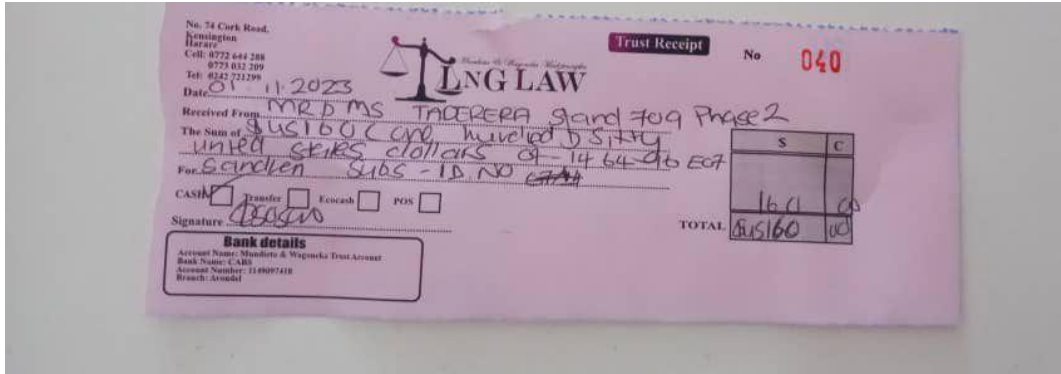 No. 74 Cork Road,
Kensington
Harare
Cell: 0772 644 288
0773 032 209
Tel: 0242 721299
Trust Receipt
No 040
LNG LAW
Date 01.11.2023
Received From MR D MS TADERERA Stand 709 Phase 2
The Sum of $US160 one hundred D Sixty
united dollars 07-14 64-96 E07
For Subs - ID NO
CASH Transfer Ecocash POS
Signature
$ C
160 00
TOTAL $US160 00
Bank details
Account Name: Mundieta & Wagoneka Trust Account
Bank Name: CABS
Account Number: 1149097418
Branch: Avondel